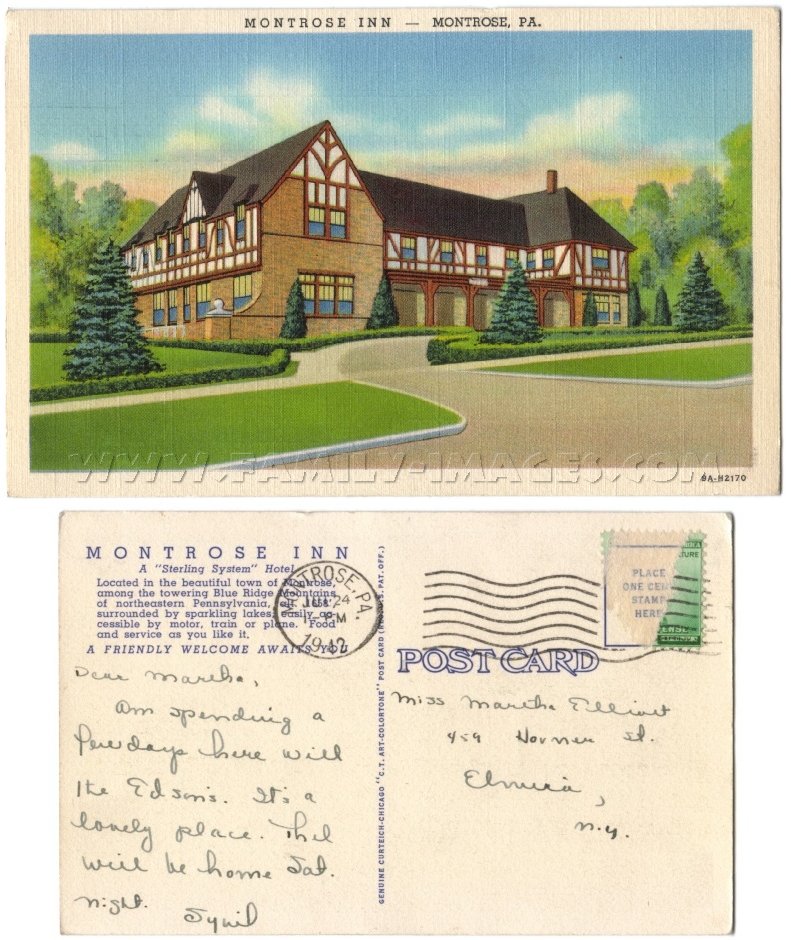 MONTROSE INN — MONTROSE, PA.
WWW.FAMILY-IMAGES.COM
9A-H2170
MONTROSE INN
A "Sterling System" Hotel
Located in the beautiful town of Montrose,
among the towering Blue Ridge Mountains
of northeastern Pennsylvania,
surrounded by sparkling lakes, easily ac-
cessible by motor, train or plane. Food
and service as you like it.
A FRIENDLY WELCOME AWAITS YOU
MONTROSE, PA.
JUL 24
PM
1942
PLACE
ONE CENT
STAMP
HERE
POST CARD
GENUINE CURTEICH-CHICAGO "C.T. ART-COLORTONE" POST CARD (REG. U.S. PAT. OFF.)
Dear Martha,
Am spending a
few days here with
the Edsons. It's a
lovely place.
Will be home Sat.
night. Sybil
Miss Martha Elliott
459 Horner St.
Elmira,
N.Y.